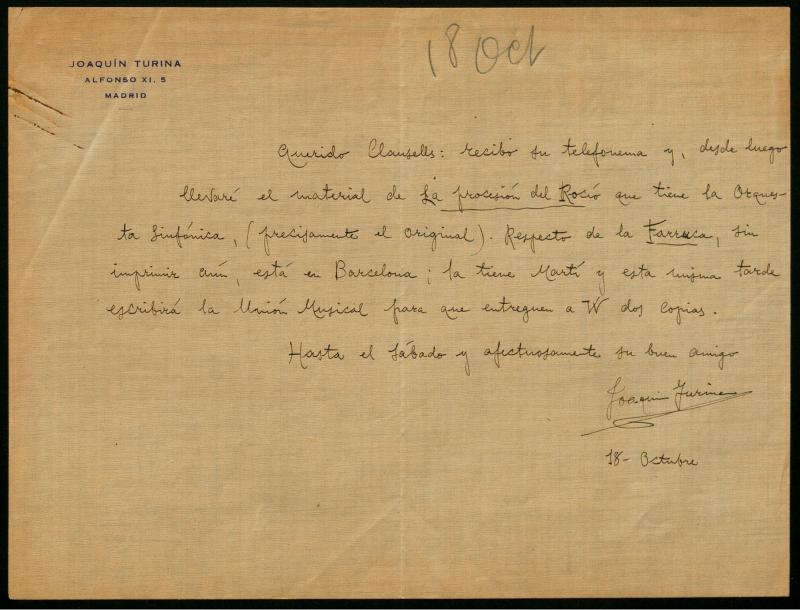 JOAQUÍN TURINA
ALFONSO XI, 5
MADRID
18 Oct
Querido Clausells: recibo su telefonema y, desde luego
llevaré el material de La procesión del Rocío que tiene la Orques-
ta Sinfónica, (precisamente el original). Respecto de la Farruca, sin
imprimir aún, está en Barcelona; la tiene Martí y esta misma tarde
escribirá la Unión Musical para que entreguen a V dos copias.
Hasta el sábado y afectuosamente su buen amigo
Joaquín Turina
18- Octubre